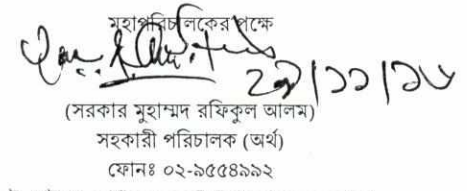 মহাপরিচালকের পক্ষে
২৯/১১/১৮
(সরকার মুহাম্মদ রফিকুল আলম)
সহকারী পরিচালক (অর্থ)
ফোনঃ ০২-৯৫৫৪৯৯২